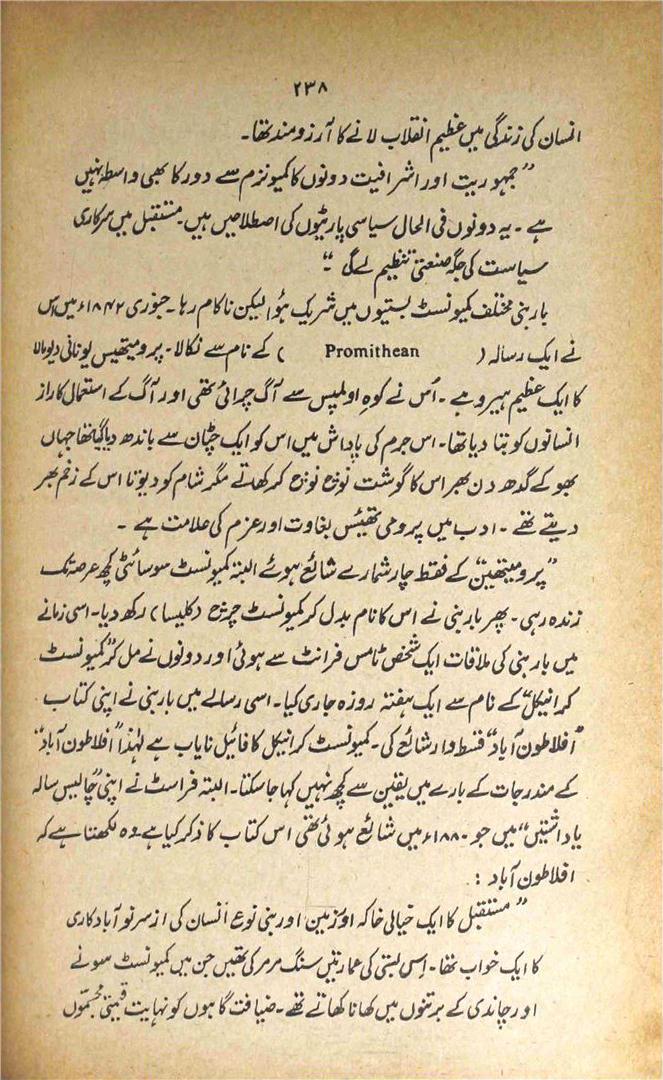 ۲۳۸
انسان کی زندگی میں عظیم انقلاب لانے کا آرزو مند تھا۔
”جمہوریت اور اشرافیت دونوں کا کمیونزم سے دور کا بھی واسطہ نہیں
ہے۔ یہ دونوں فی الحال سیاسی پارٹیوں کی اصطلاحیں ہیں۔ مستقبل میں سرکاری
سیاست کی جگہ صنعتی تنظیم لے گی“۔
باربنی مختلف کمیونسٹ بستیوں میں شریک ہوا لیکن ناکام رہا۔ جنوری ۱۸۴۲ء میں اس
نے ایک رسالہ ( Promithean ) کے نام سے نکالا۔ پرومیتھیس یونانی دیومالا
کا ایک عظیم ہیرو ہے۔ اُس نے کوہِ اولمپس سے آگ چرائی تھی اور آگ کے استعمال کا راز
انسانوں کو بتا دیا تھا۔ اس جرم کی پاداش میں اس کو ایک چٹان سے باندھ دیا گیا تھا جہاں
بھوکے گدھ دن بھر اس کا گوشت نوچ نوچ کر کھاتے مگر شام کو دیوتا اس کے زخم بھر
دیتے تھے۔ ادب میں پرومی تھیئس بغاوت اور عزم کی علامت ہے۔
”پرومیتھین“ کے فقط چار شمارے شائع ہوئے البتہ کمیونسٹ سوسائٹی کچھ عرصہ تک
زندہ رہی۔ پھر باربنی نے اس کا نام بدل کر کمیونسٹ چرچ (کلیسا) رکھ دیا۔ اسی زمانے
میں باربنی کی ملاقات ایک شخص ٹامس فرانٹ سے ہوئی اور دونوں نے مل کر ”کمیونسٹ
کرانیکل“ کے نام سے ایک ہفتہ روزہ جاری کیا۔ اسی رسالے میں باربنی نے اپنی کتاب
”افلاطون آباد“ قسط وار شائع کی۔ کمیونسٹ کرانیکل کا فائیل نایاب ہے لہٰذا ”افلاطون آباد“
کے مندرجات کے بارے میں یقین سے کچھ نہیں کہا جا سکتا۔ البتہ فراسٹ نے اپنی ”چالیس سالہ
یادداشتیں“ میں جو ۱۸۸۰ء میں شائع ہوئی تھی اس کتاب کا ذکر کیا ہے وہ لکھتا ہے کہ
افلاطون آباد :
”مستقبل کا ایک خیالی خاکہ اور زمین اور بنی نوع انسان کی از سرِ نو آباد کاری
کا ایک خواب تھا۔ اِس بستی کی عمارتیں سنگ مرمر کی تھیں جن میں کمیونسٹ سونے
اور چاندی کے برتنوں میں کھانا کھاتے تھے۔ ضیافت گاہوں کو نہایت قیمتی مجسّموں